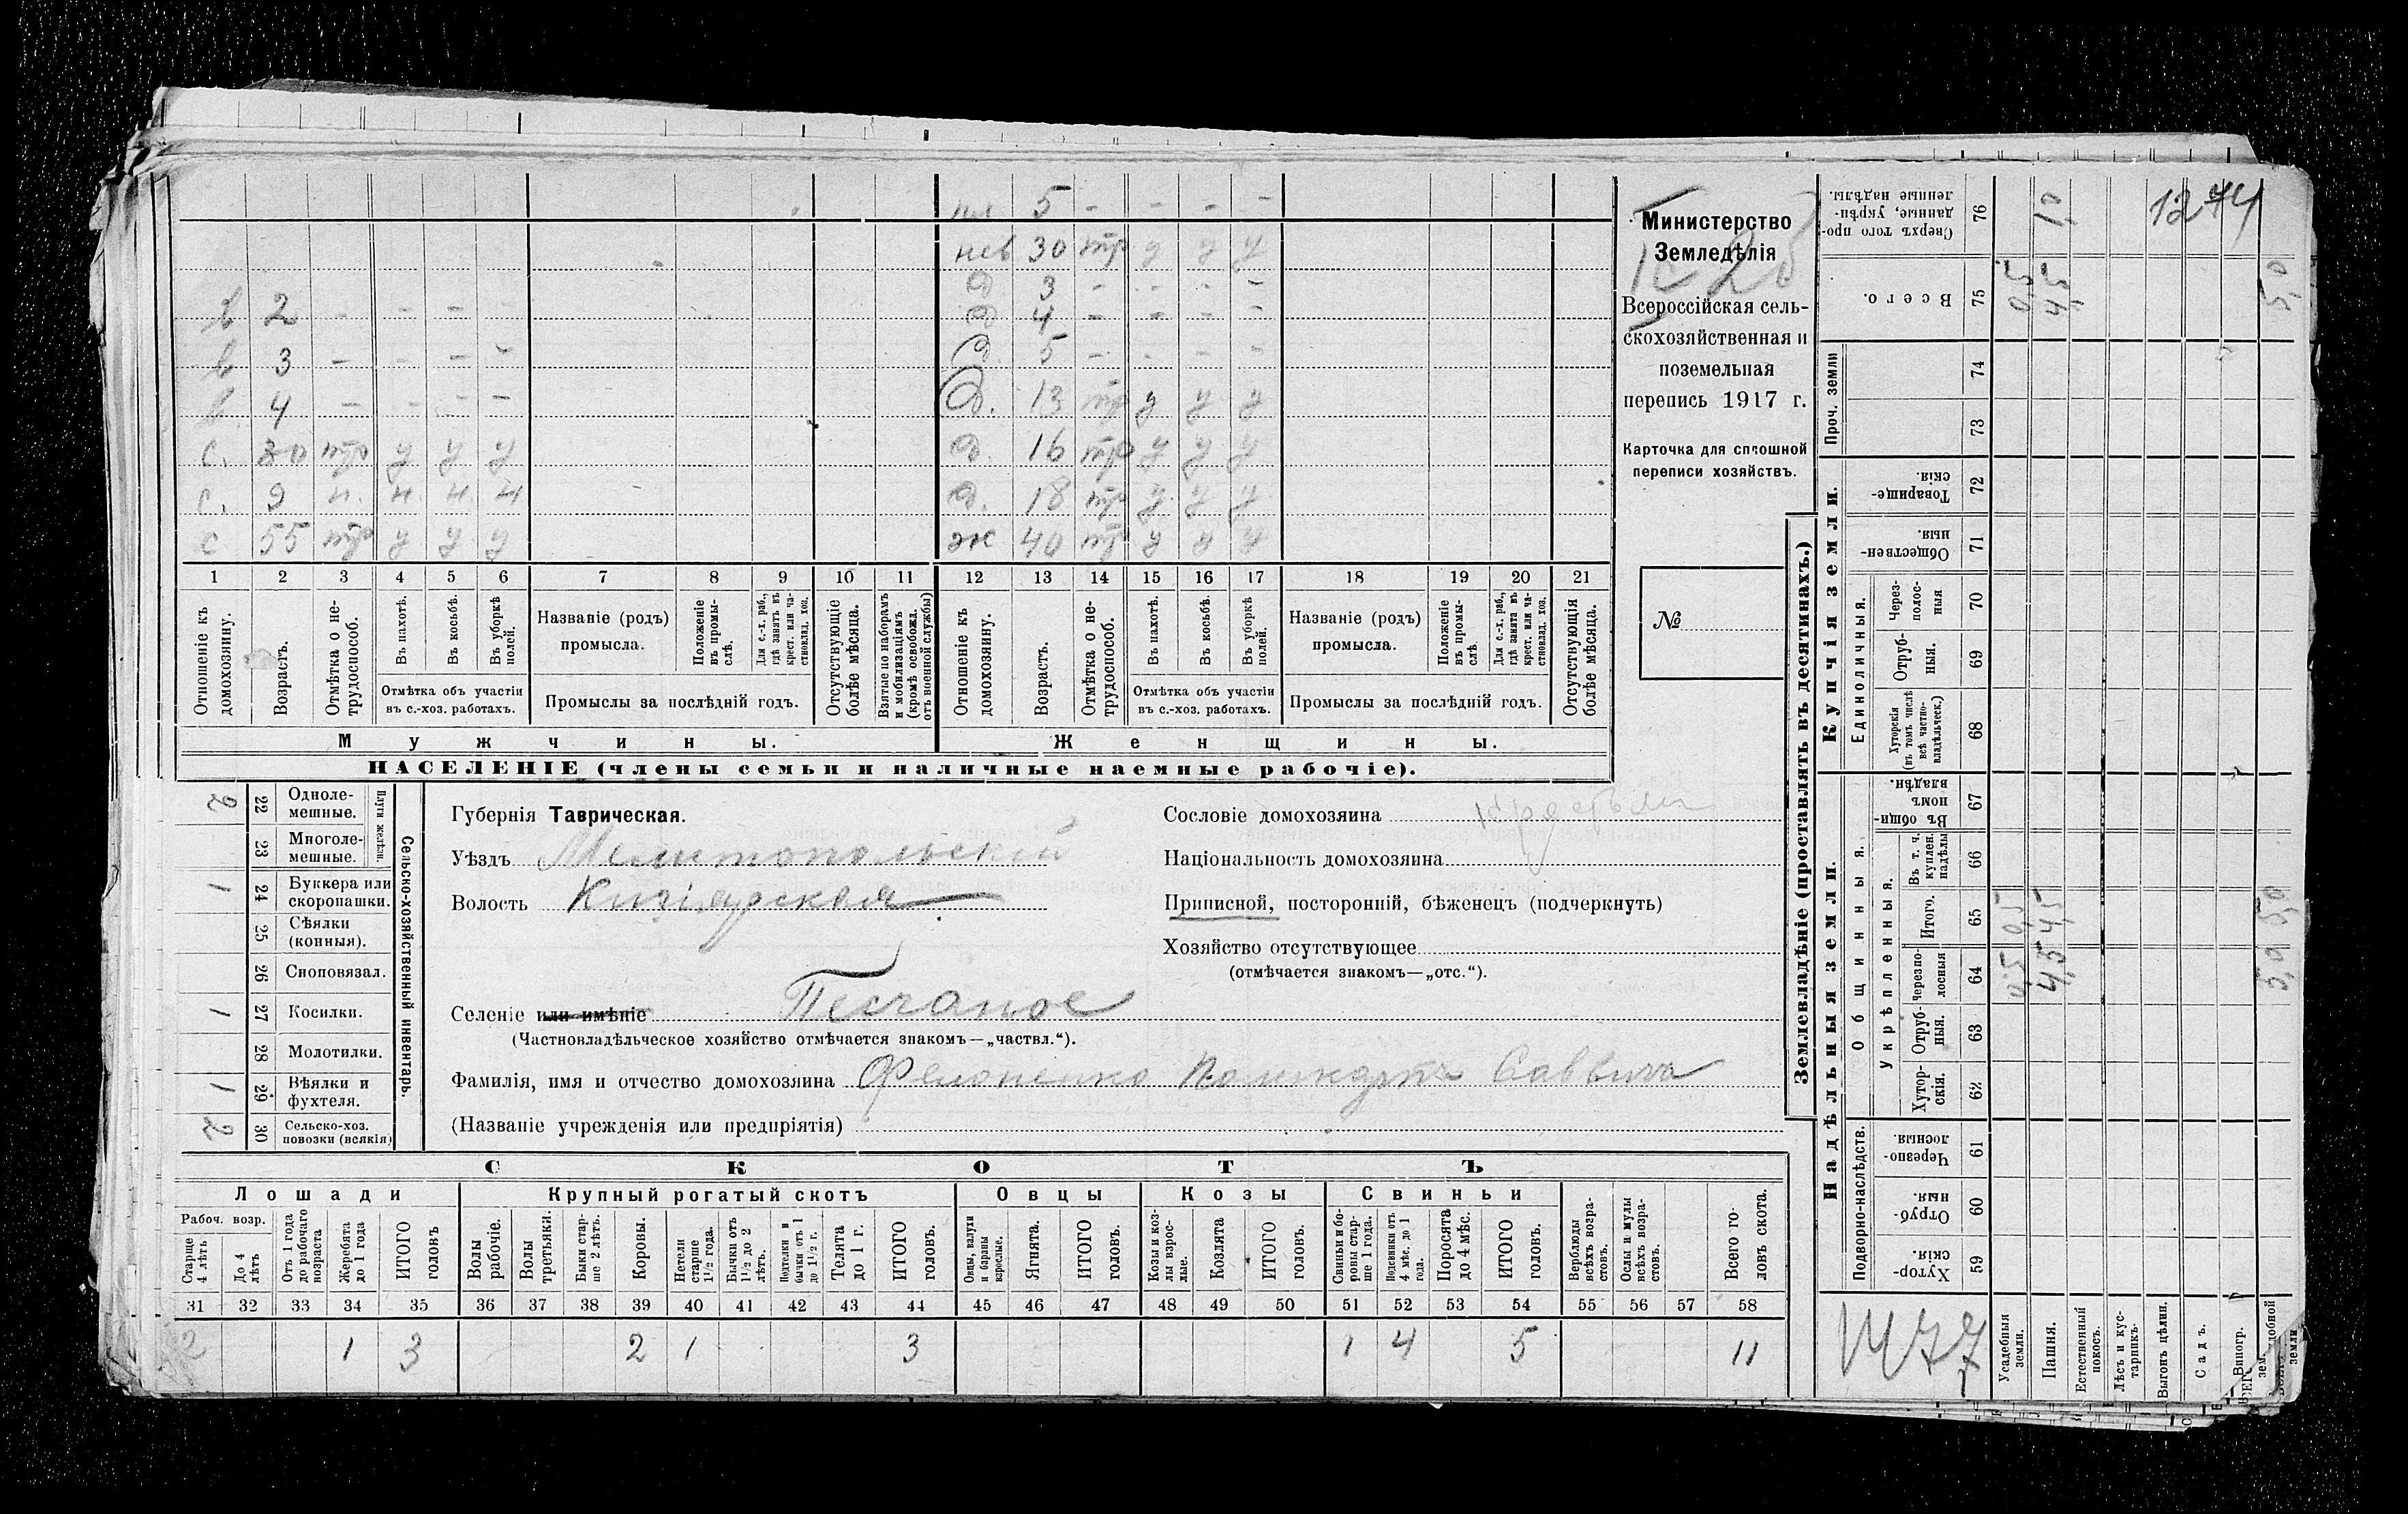 пл 5 - - - -
нев 30 тр у у у
д 3 - - - -
в 2 - - - - д 4 - - - -
в 3 - - - - д. 5 - - - -
в 4 - - - - д. 13 тр у у у
с. 30 тр у у у д. 16 тр у у у
с. 9 н. н. н. н д. 18 тр у у у
с 55 тр у у у ж 40 тр у у у
1 2 3 4 5 6 7 8 9 10 11 12 13 14 15 16 17 18 19 20 21
Отношеніе къ домохозяину.
Возрастъ.
Отмѣтка о не-трудоспособ.
Въ пахотѣ.
Въ косьбѣ.
Въ уборкѣ полей.
Отмѣтка объ участіи
въ с.-хоз. работахъ.
Названіе (родъ)
промысла.
Положеніе въ промы-слѣ.
Для с.-х. раб., гдѣ занятъ въ крест. или ча-стновлад. хоз.
Промыслы за послѣдній годъ.
Отсутствующіе болѣе мѣсяца.
Взятые по наборамъ и мобилизаціямъ (кромѣ освобожд. отъ военной службы)
Отношеніе къ домохозяину.
Возрастъ.
Отмѣтка о не-трудоспособ.
Въ пахотѣ.
Въ косьбѣ.
Въ уборкѣ полей.
Отмѣтка объ участіи
въ с.-хоз. работахъ.
Названіе (родъ)
промысла.
Положеніе въ промы-слѣ
Для с.-х. раб., гдѣ занята въ крест. или ча-стновлад. хоз.
Промыслы за послѣдній годъ.
Отсутствующія болѣе мѣсяца.
Мужчины. Женщины.
НАСЕЛЕНІЕ (члены семьи и наличные наемные рабочіе).
Министерство
Земледѣлія
Всероссійская сель-
скохозяйственная и
поземельная
перепись 1917 г.
Карточка для сплошной
переписи хозяйствъ.
№
2 22 Одноле-мешные.
23 Многоле-мешные.
Плуги желѣзн.
1 24 Буккера или скоропашки.
25 Сѣялки (конныя).
26 Сноповязал.
1 27 Косилки.
28 Молотилки.
1 29 Вѣялки и фухтеля.
2 30 Сельско-хоз. повозки (всякія)
Сельско-хозяйственный инвентарь.
Губернія Таврическая.
Уѣздъ Мелитопольскій
Волость Кизіярская
Селеніе или имѣніе Песчаное
(Частновладѣльческое хозяйство отмѣчается знакомъ—„частвл.“).
Фамилія, имя и отчество домохозяина Филоненко Поликарпъ Саввичъ
(Названіе учрежденія или предпріятія)
Сословіе домохозяина
Національность домохозяина
Приписной, посторонній, бѣженецъ (подчеркнуть)
Хозяйство отсутствующее
(отмѣчается знакомъ—„отс.“).
СКОТЪ
Лошади Крупный рогатый скотъ Овцы Козы Свиньи
Рабоч. возр.
Старше 4 лѣтъ
До 4 лѣтъ
Отъ 1 года до рабочаго возраста
Жеребята до 1 года
ИТОГО головъ
Волы рабочіе.
Волы третьяки.
Быки стар-ше 2 лѣтъ.
Коровы.
Нетели старше 1½ года.
Бычки отъ 1½ до 2 лѣтъ.
Подтелки и бычки отъ 1 до 1½ г.
Телята до 1 г.
ИТОГО головъ.
Овцы, валухи и бараны взрослые.
Ягнята.
ИТОГО головъ.
Козы и коз-лы взрос-лые.
Козлята
ИТОГО головъ.
Свиньи и бо-ровы стар-ше 1 года.
Подсвинки отъ 4 мѣс. до 1 года.
Поросята до 4 мѣс.
ИТОГО головъ.
Верблюды всѣхъ возра-стовъ.
Ослы и мулы всѣхъ возра-стовъ.
Всего го-ловъ скота.
31 32 33 34 35 36 37 38 39 40 41 42 43 44 45 46 47 48 49 50 51 52 53 54 55 56 57 58
2 1 3 2 1 3 1 4 5 11
Землевладѣніе (проставлять въ десятинахъ.)
Надѣльныя земли. Купчія земли.
Подворно-наслѣдств.
Общинныя.
Укрѣпленныя.
Единоличныя.
Проч. земли
Сверхъ того про-данные, укрѣп-ленные надѣлы. 76 1,0 1274
Всего. 75 0,5 4,5 5,0
74
73
Товарище-скія. 72
Обществен-ныя. 71
Через-полос-ныя 70
Отруб-ныя. 69
Хуторскія (въ томъ числѣ всѣ частно-владѣльческ.) 68
Въ общи-номъ владѣн. 67
Въ т. ч. куплен. надѣлы 66
Итого. 65 0,5 4,5 5,0
Черезпо-лосныя 64 0,5 4,5 5,0
Отруб-ныя. 63
Хутор-скія. 62
Черезпо-лосныя 61
Отруб-ныя. 60
Хутор-скія. 59
Усадебныя земли.
Пашня.
Естественный покосъ.
Лѣсъ и кус-тарникъ.
Выгонъ цѣлин.
Садъ.
Виногр.
1477